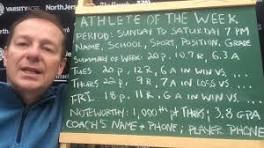 VARSITY
North Jer
ATHLETE OF THE WEEK
PERIOD: SUNDAY TO SATURDAY 7 PM
NAME, SCHOOL, SPORT, POSITION, GRADE
SUMMARY OF WEEK: 20 P, 10.7 R, 6.3 A
TUES 20 P, 12 R, 6 A IN WIN VS ....
THURS 22 P, 9 R, 7 A IN LOSS VS ....
FRI. 18 P, 11 R, 6 A IN WIN VS ....
NOTEWORTHY: 1,000th pt THURS; 3.8 GPA
COACH'S NAME + PHONE; PLAYER PHONE